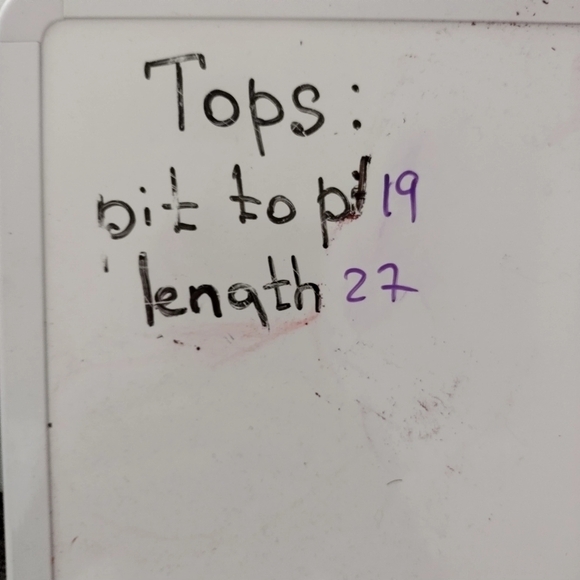 Tops:
pit to pit 19
length 27